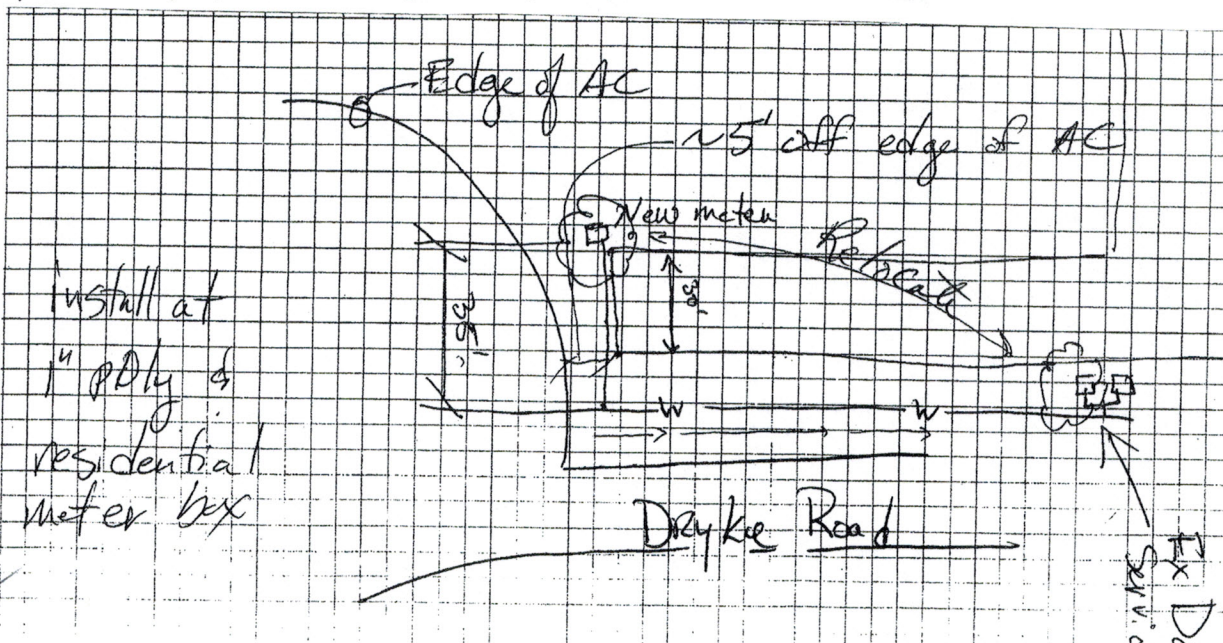 Edge of AC
~5' off edge of AC
New meter
Relocate
Install at
1" poly &
residential
meter box
W
W
Road
Ex